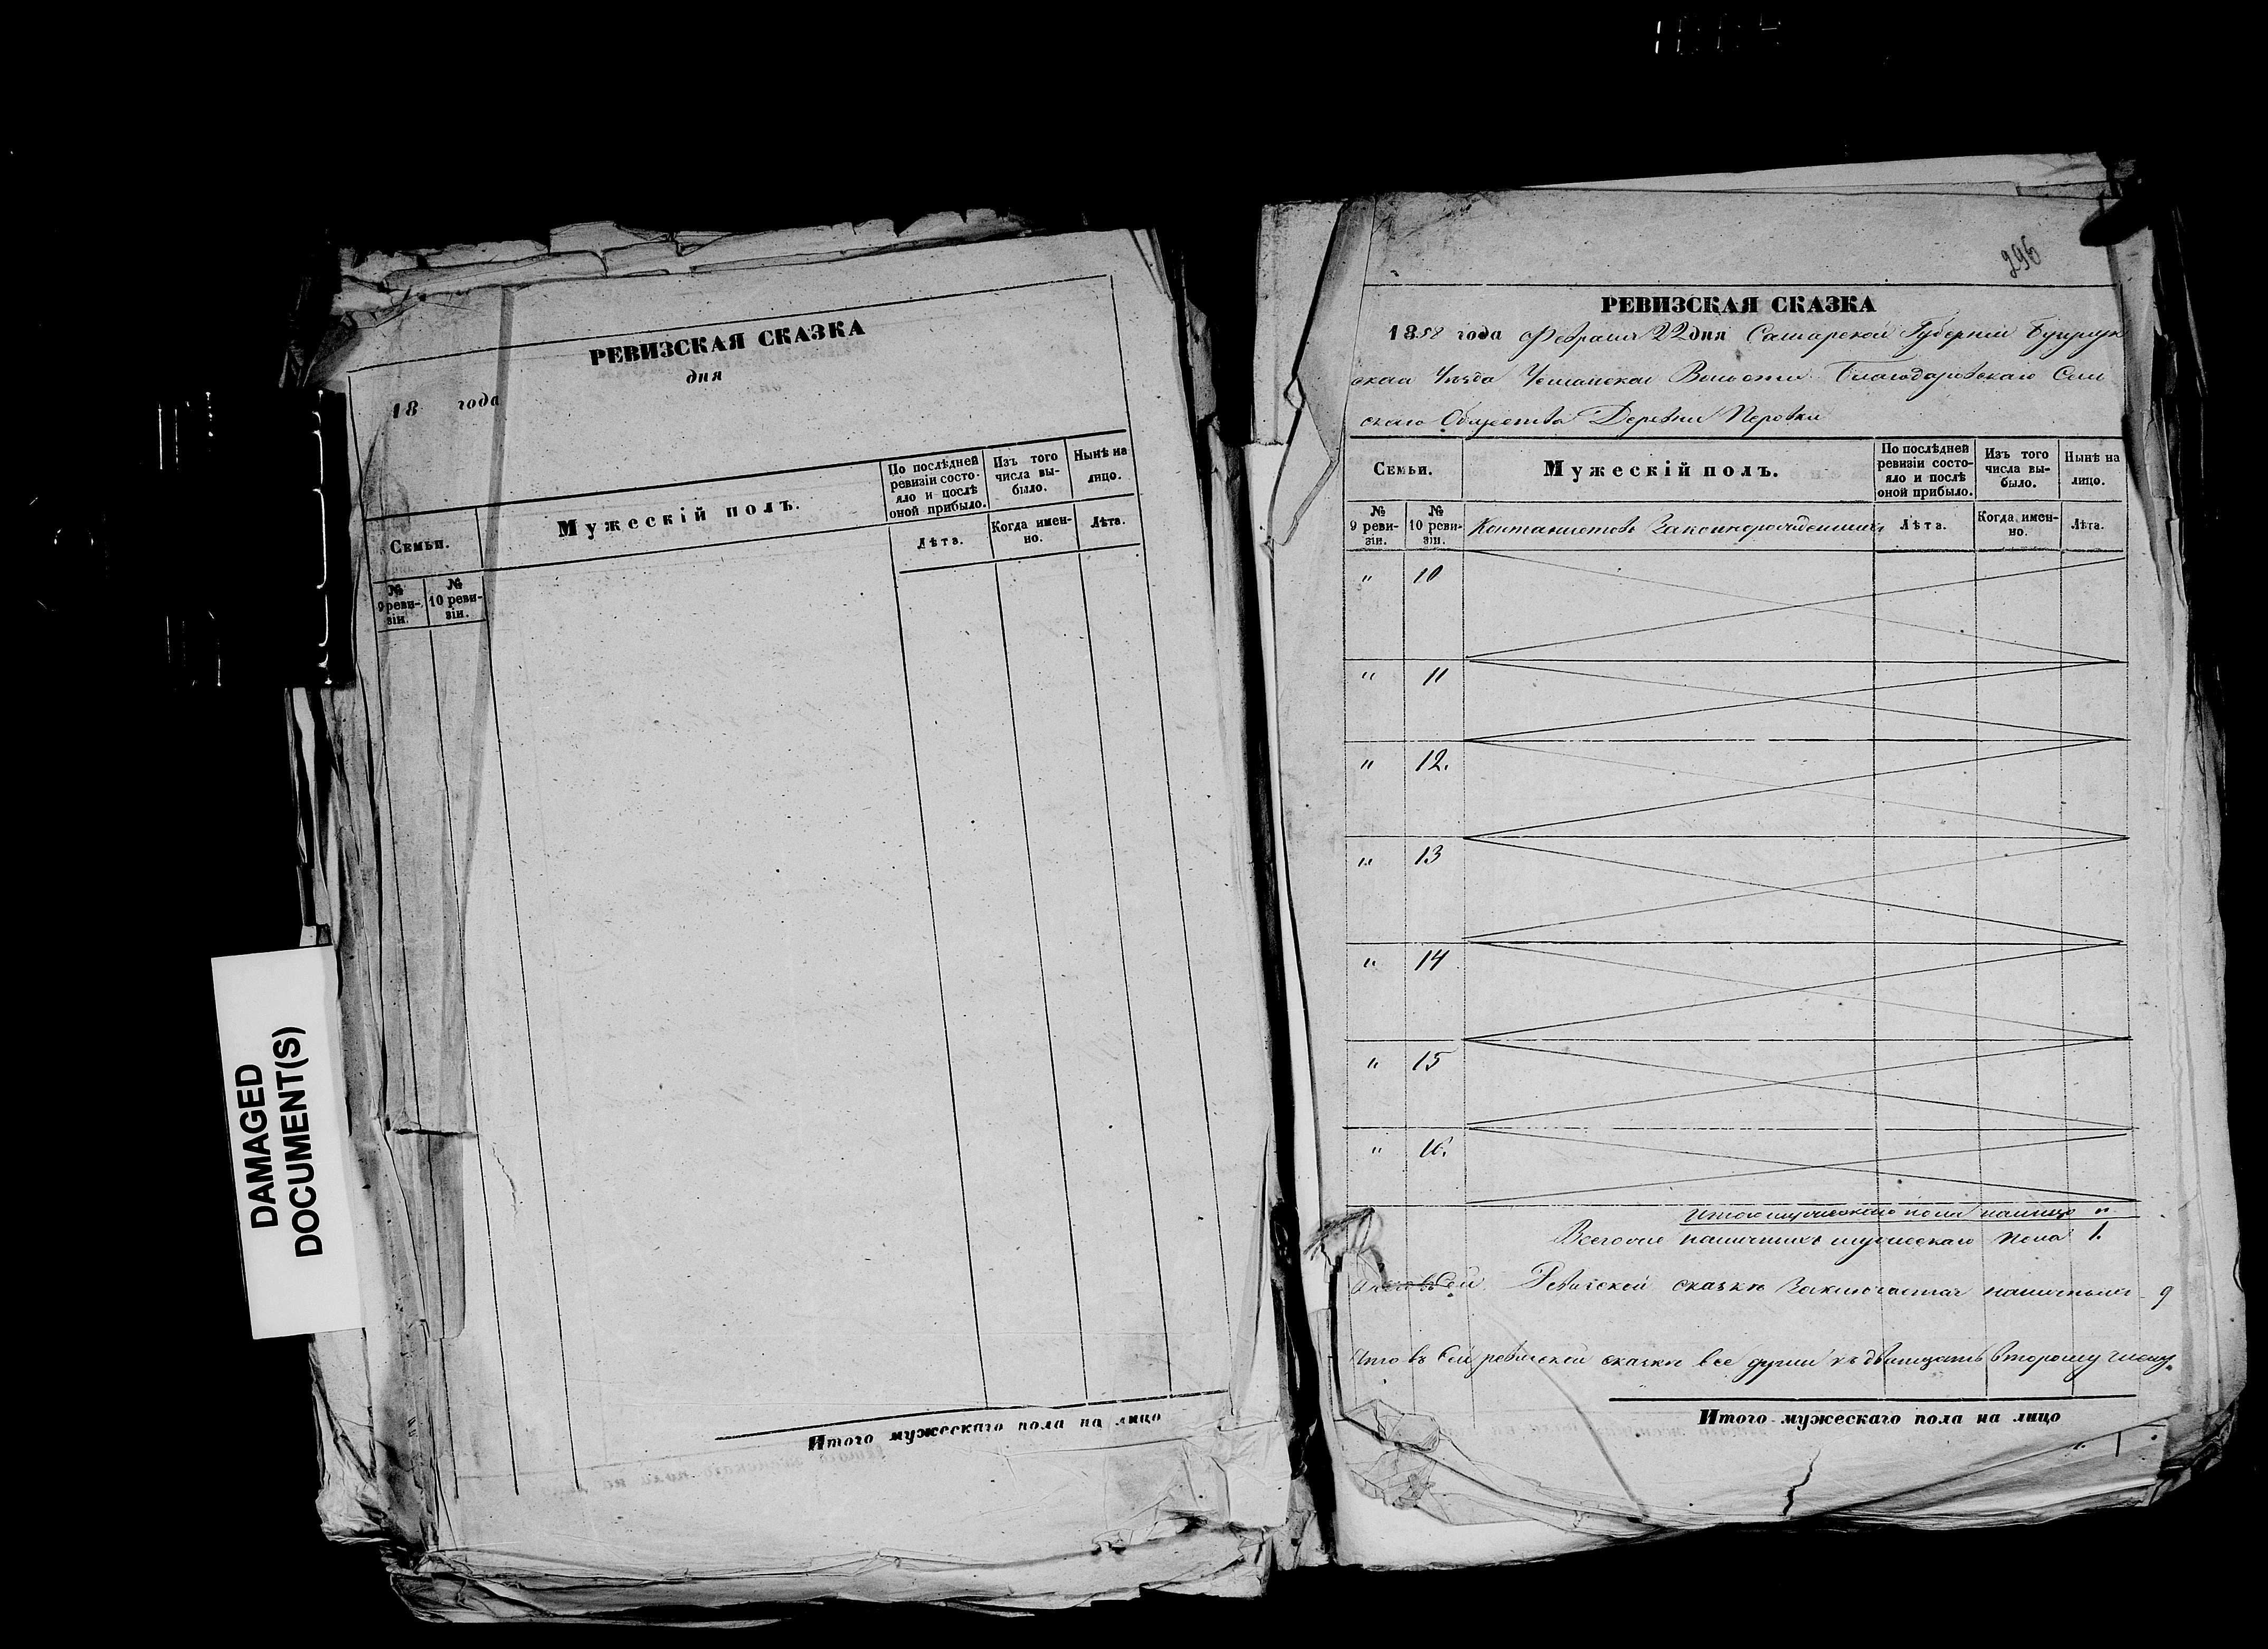 РЕВИЗСКАЯ СКАЗКА
18 года дня
Семьи.
Мужескій полъ.
По послѣдней ревизіи состо-
яло и послѣ
оной прибыло.
Изъ того
числа вы-
было.
Нынѣ на
лицо.
№
9 реви-
зіи.
№
10 реви-
зіи.
Лѣта.
Когда имен-
но.
Лѣта.
Итого мужескаго пола на лицо
DAMAGED
DOCUMENT(S)
296
РЕВИЗСКАЯ СКАЗКА
1858 года Февраля 22 дня Самарской Губерніи Бугурук
скаго Уѣзда Волости Благодаровскаго Сель
скаго Общества Деревни Перовки
Семьи.
Мужескій полъ.
По послѣдней
ревизіи состо-
яло и послѣ
оной прибыло.
Изъ того
числа вы-
было.
Нынѣ на
лицо.
№
9 реви-
зіи.
№
10 реви-
зіи.
Кантонистовъ Законнорожденныхъ
Лѣта.
Когда имен-
но.
Лѣта.
" 10
" 11
" 12.
" 13
" 14
" 15
" 16.
Итого мужескаго пола налицо "
Всего наличныхъ мужескаго пола 1.
Ревизской сказкѣ заключается наличныхъ 9
Что въ сей ревизской сказкѣ все души къ двадцать второму числу
Итого мужескаго пола на лицо